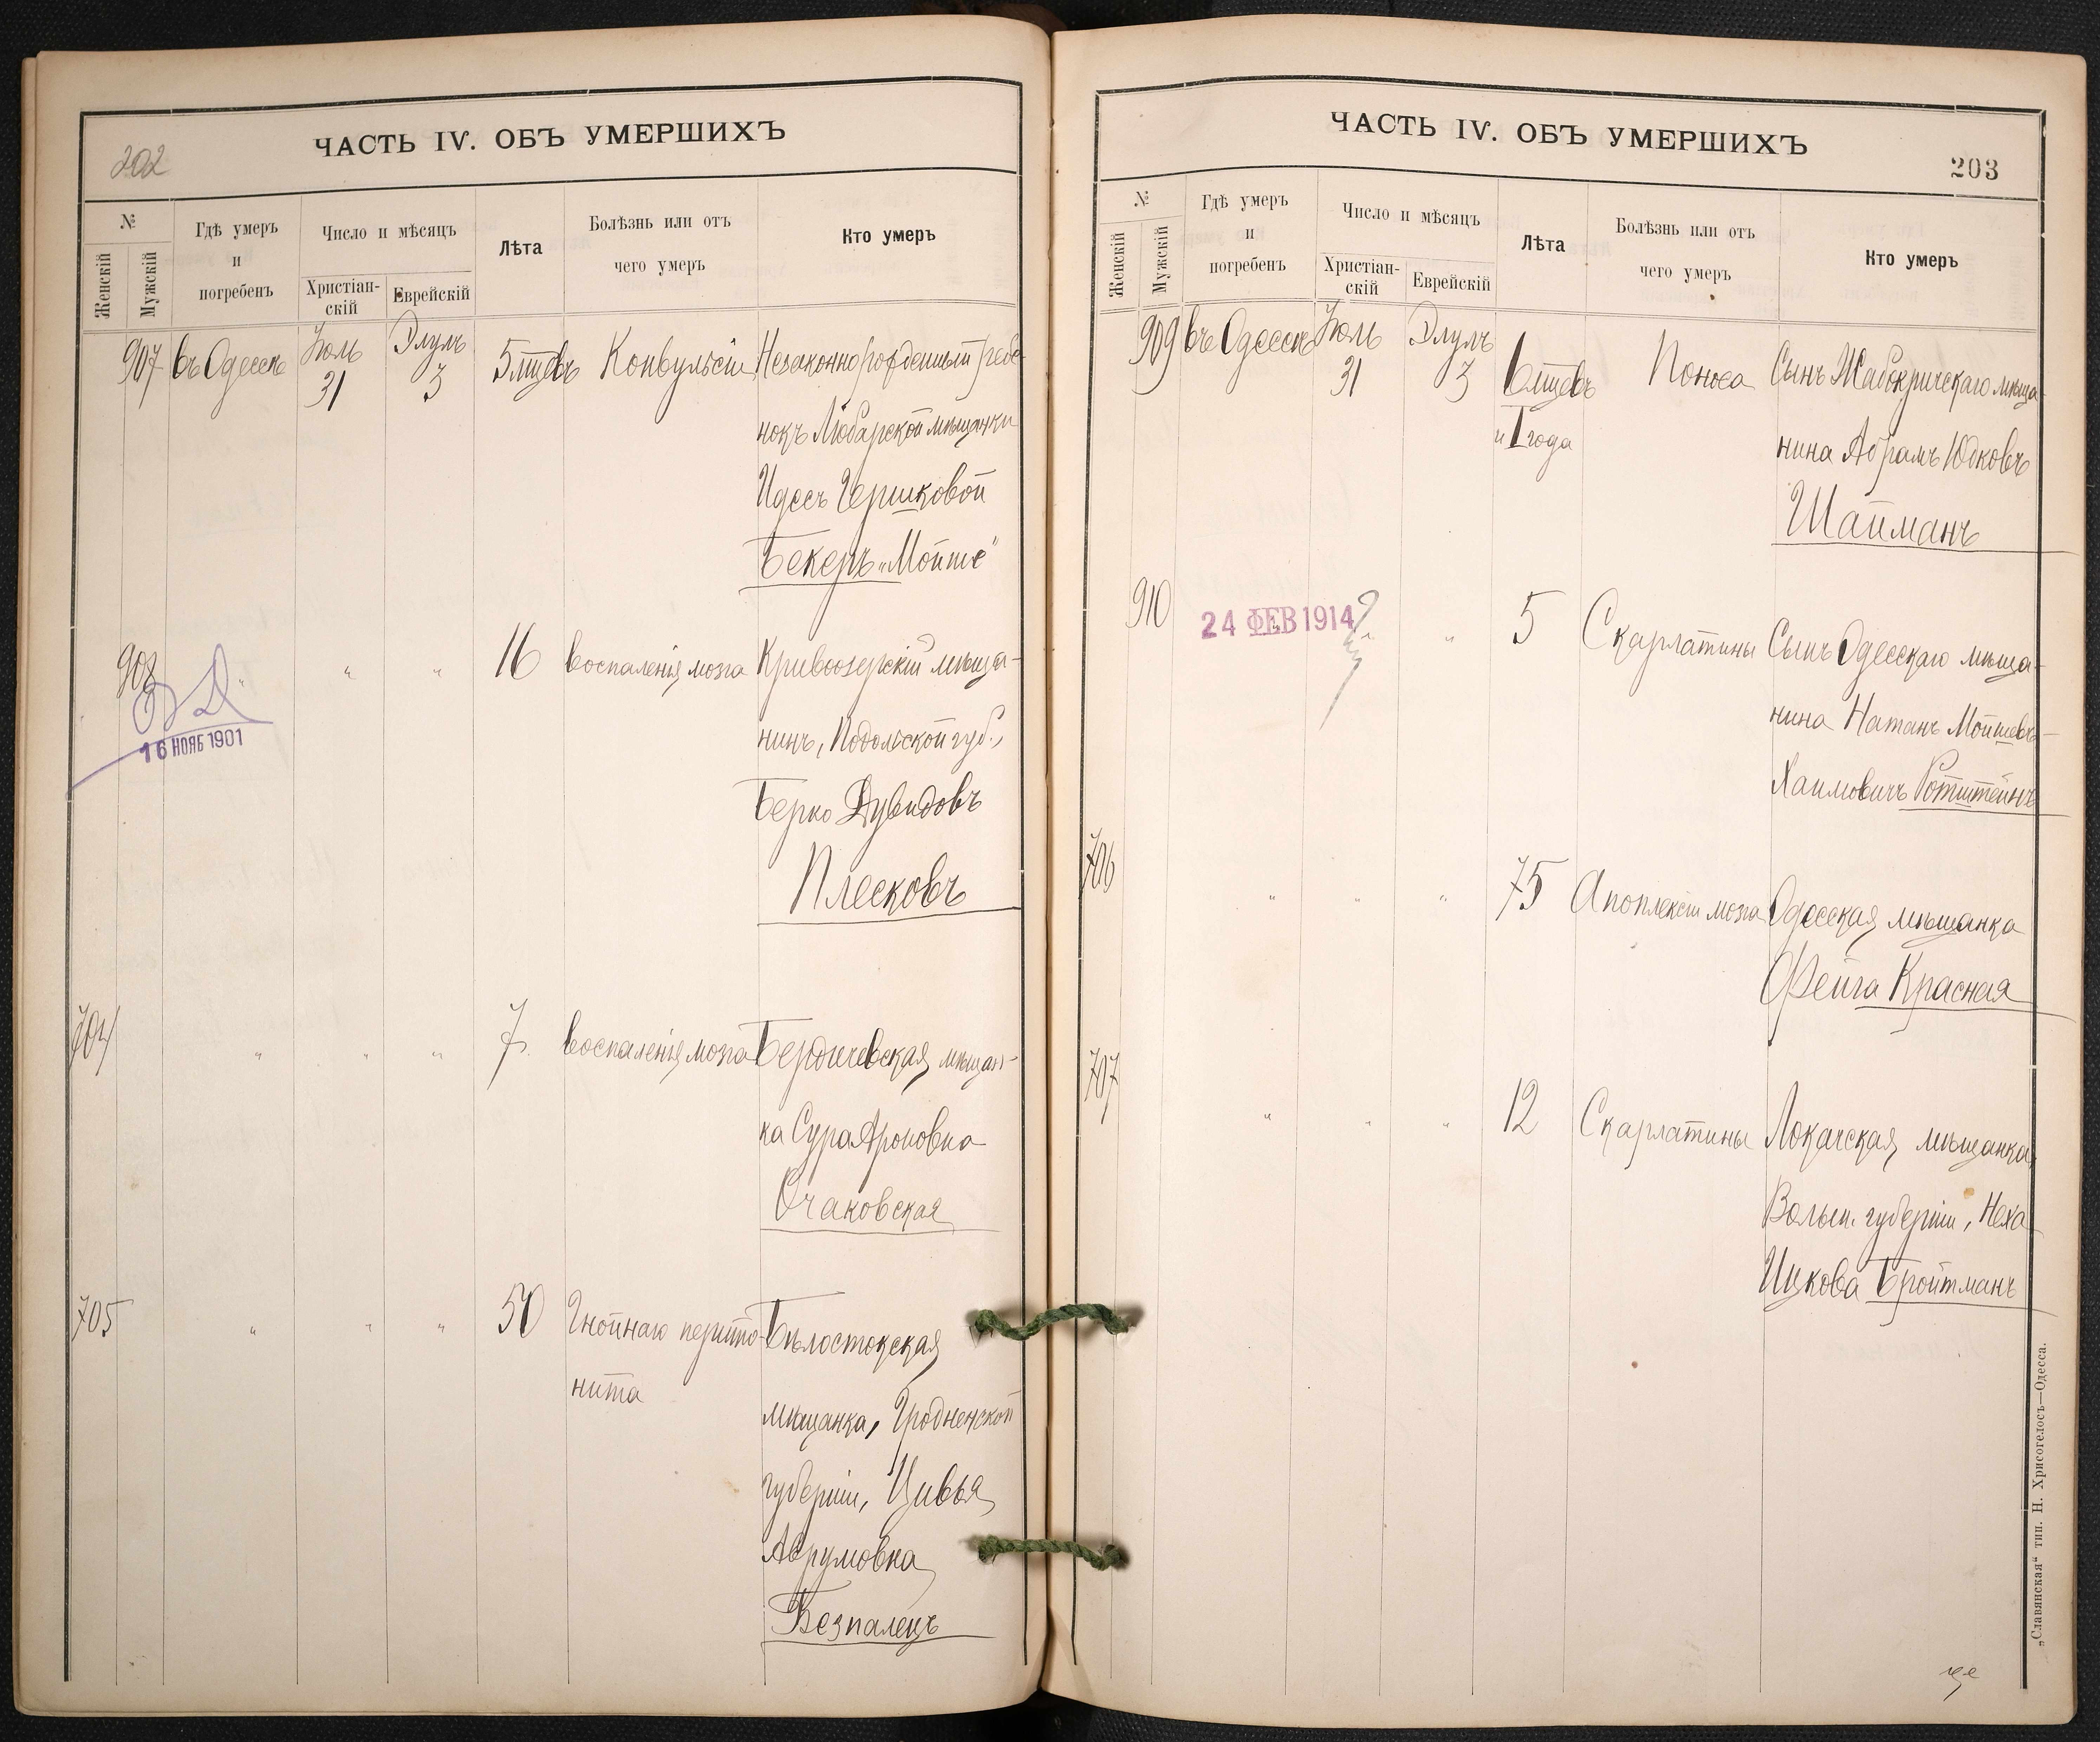 202
ЧАСТЬ IV. ОБЪ УМЕРШИХЪ
№
Женскій
Мужскій
Гдѣ умеръ
и
погребенъ
Число и мѣсяцъ
Христіан-
скій
Еврейскій
Лѣта
Болѣзнь или отъ
чего умеръ
Кто умеръ
907 въ Одессѣ Іюль 31 Элулъ 3 5 мцевъ Конвульсіи Незаконнорожденный ребе-
нокъ Любарской мѣщанки
Идесъ Гершковой
Бекеръ „Мойше"
908 " " " 16 воспаленія мозга Кривоозерскій мѣща-
нинъ, Подольской губ.,
Берко Дувидовъ
Плесковъ
16 НОЯБ 1901
704 " " " 7 воспаленія мозга Бердичевская мѣщан-
ка Сура Ароновна
Очаковская
705 " " " 50 Гнойнаго перито-
нита
Бѣлостокская
мѣщанка, Гродненской
губерніи, Цивья
Аврумовна
Безпалецъ
ЧАСТЬ IV. ОБЪ УМЕРШИХЪ
203
№
Женскій
Мужскій
Гдѣ умеръ
и
погребенъ
Число и мѣсяцъ
Христіан-
скій
Еврейскій
Лѣта
Болѣзнь или отъ
чего умеръ
Кто умеръ
909 въ Одессѣ Іюль 31 Элулъ 3 6 мцевъ
и 1 года
Поноса Сынъ Жабокричскаго мѣща-
нина Абрамъ Юдковъ
Шайманъ
910 24 ФЕВ 1914 " " 5 Скарлатины Сынъ Одесскаго мѣща-
нина Натанъ Мойшевъ-
Хаимовичъ Ротштейнъ
706 " " " 75 Апоплексіи мозга Одесская мѣщанка
Фейга Красная
707 " " " 12 Скарлатины Локачская мѣщанка,
Волын. губерніи, Неха
Ицкова Бройтманъ
„Славянская“ тип. Н. Хрисогелосъ—Одесса.